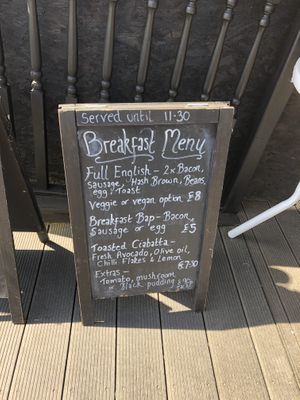 Served until 11:30
Breakfast Menu
Full English – 2x Bacon,
Sausage, Hash Brown, Beans,
egg, Toast
Veggie or vegan option £8
Breakfast Bap – Bacon,
Sausage or egg £5
Toasted Ciabatta –
Fresh Avocado, Olive oil,
Chilli Flakes & Lemon
£7.50
Extras –
Tomato, mushroom
or Black pudding